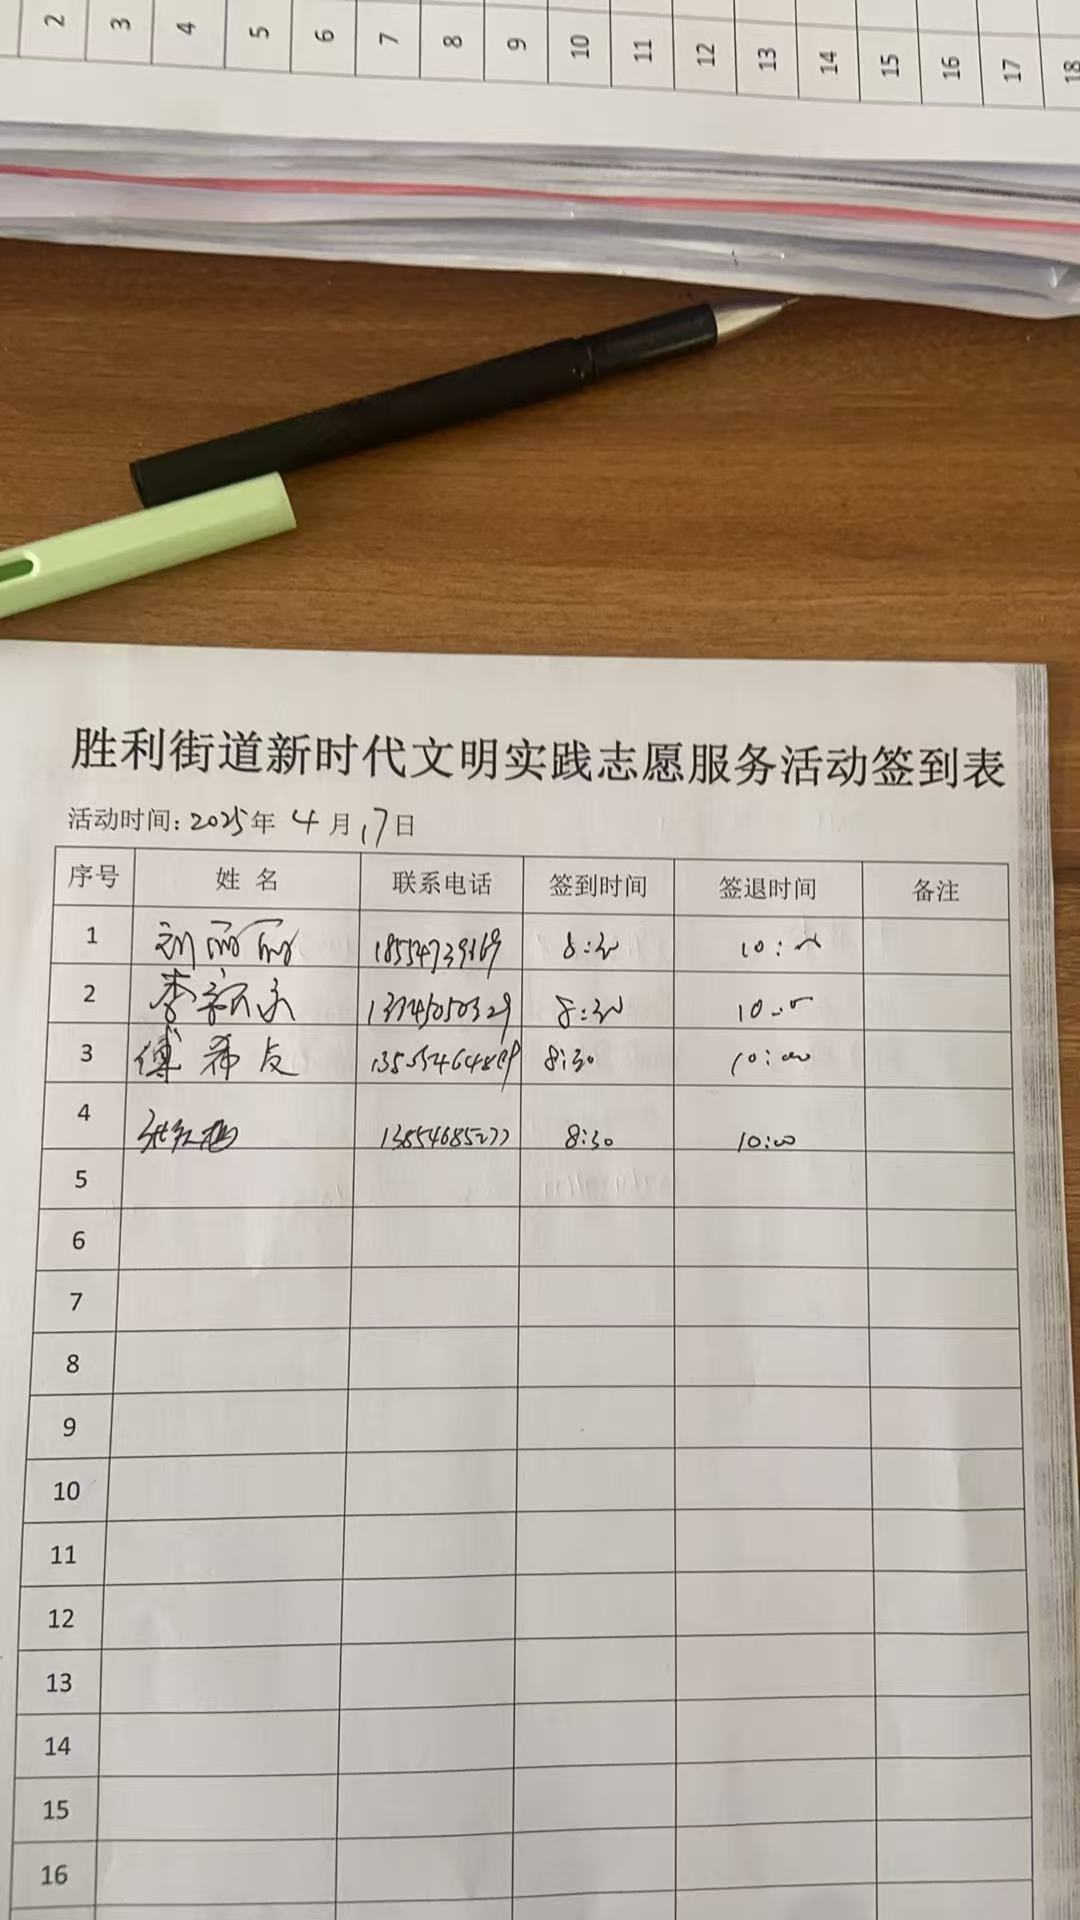 2 3 4 5 6 7 8 9 10 11 12 13 14 15 16 17 18
胜利街道新时代文明实践志愿服务活动签到表
活动时间: 2025年 4月 17日
序号 姓名 联系电话 签到时间 签退时间 备注
1 刘丽丽 8:30 10:00
2 李 8:30 10:00
3 傅希友 8:30 10:00
4 张红梅 8:30 10:00
5
6
7
8
9
10
11
12
13
14
15
16